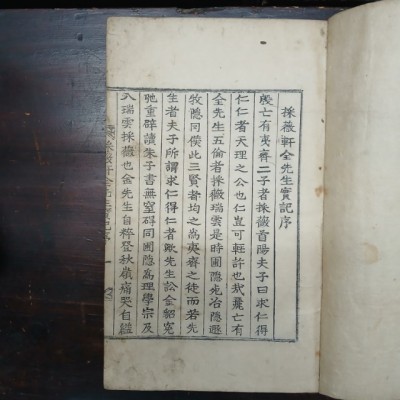 採薇軒全先生實記序
殷亡有夷齊二子者採薇首陽夫子曰求仁得
仁仁者天理之公也仁豈可輕許也哉麗亡有
全先生五倫者採薇瑞雲是時圃隱冶隱遯
牧隱同儕此三賢者均之爲夷齊之徒而若先
生者夫子所謂求仁得仁者歟先生訟金貂寃
虵重辟讀朱子書無窒碍同圃隱爲理學宗及
入瑞雲採薇也金先生自粹登秋嶺痛哭自縊
採薇軒全先生實記序